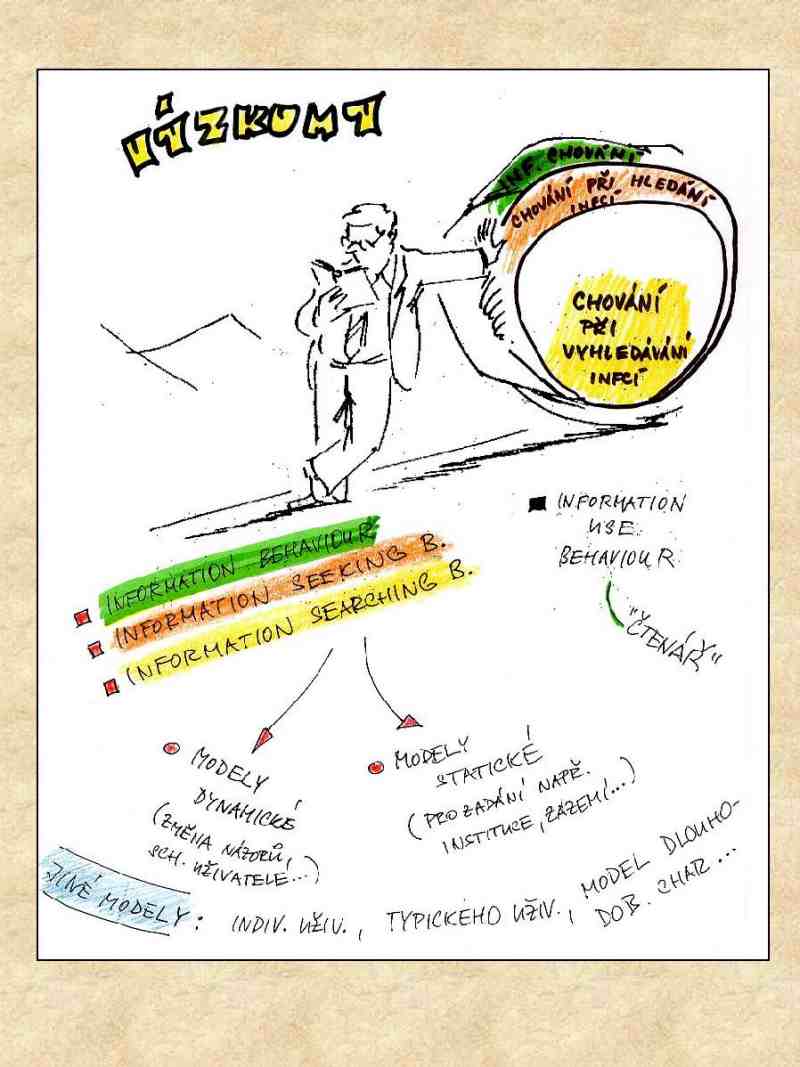 VÝZKUMY
INF. CHOVÁNÍ
CHOVÁNÍ PŘI HLEDÁNÍ
INFCÍ
CHOVÁNÍ
PŘI
VYHLEDÁVÁNÍ
INFCÍ
INFORMATION
USE
BEHAVIOUR
"ČTENÁŘ"
INFORMATION BEHAVIOUR
INFORMATION SEEKING B.
INFORMATION SEARCHING B.
MODELY
DYNAMICKÉ
(ZMĚNA NÁZORŮ,
SCH. UŽIVATELE...)
MODELY
STATICKÉ
(PRO ZADÁNÍ NAPŘ.
INSTITUCE, ZÁZEMÍ...)
JINÉ MODELY: INDIV. UŽIV., TYPICKÉHO UŽIV., MODEL DLOUHO-
DOB. CHAR...